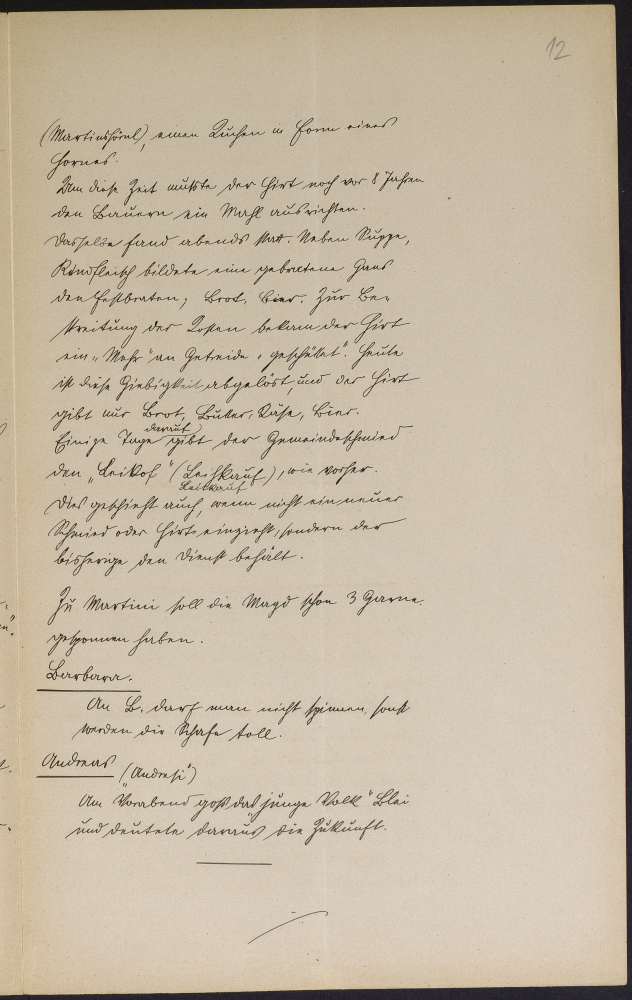 12
(Martinshörnl), einen Kuchen in Form eines
Hornes.
Um diese Zeit mußte der Hirt noch vor 8 Jahren
den Bauern ein Mahl ausrichten.
Dasselbe fand abends statt. Neben Suppe,
Rindfleisch bildete eine gebratene Gans
den Festbraten; Brot, Bier. Zur Be-
streitung der Kosten bekam der Hirt
ein „Mehr" an Getreide „geschüttet". Heute
ist diese Giebigkeit abgelöst, und der Hirt
gibt nur Brot, Butter, Käse, Bier.
Einige Tage darauf gibt der Gemeindeschmied
den „Leikof" (Leihkauf), wie vorher.
Leitkauf
Dies geschieht auch, wenn nicht ein neuer
Schmied oder Hirt einzieht, sondern der
bisherige den Dienst behält.
Zu Martini soll die Magd schon 3 Garne
gesponnen haben.
Barbara.
An B. darf man nicht spinnen, sonst
werden die Schafe toll.
Andreas (Andresi)
Am Vorabend goß das „junge Volk" Blei
und deutete daraus die Zukunft.